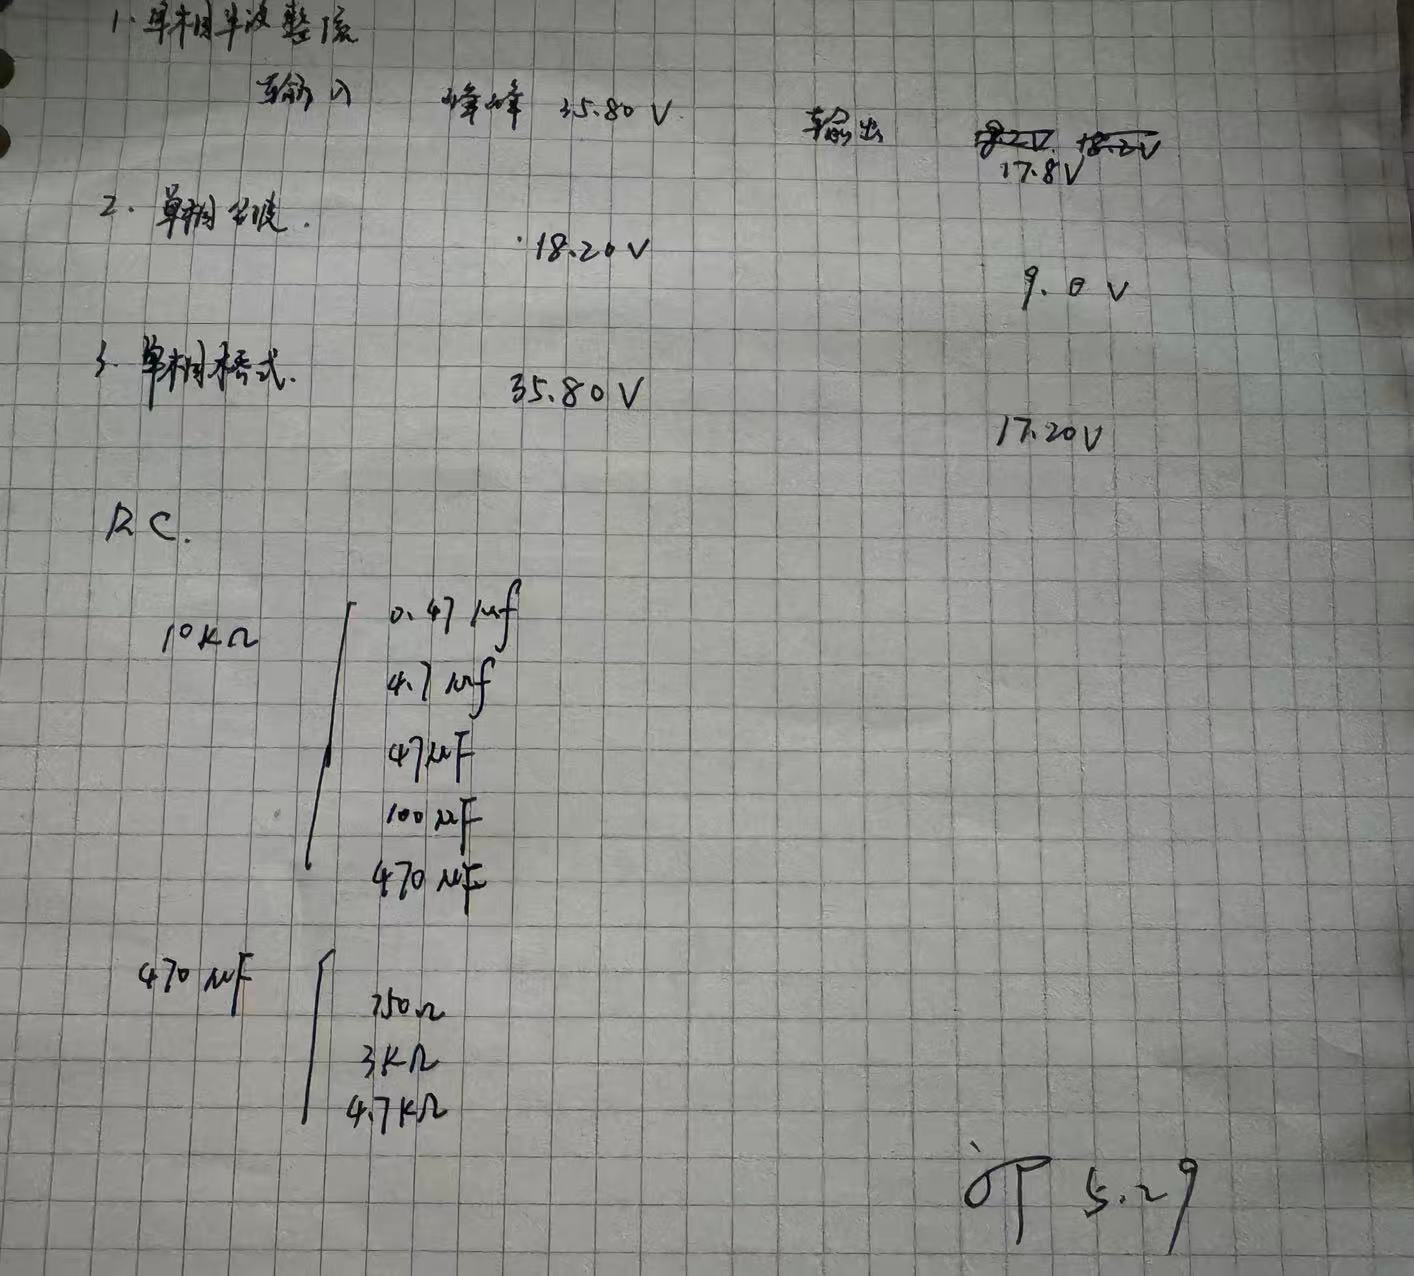 1. 单相半波整流
输入 峰峰 35.80 V 输出 18.2V
17.8V
2. 单相全波.
18.20 V
9.0 V
3. 单相桥式.
35.80 V
17.20V
RC.
0.47 μf
10KΩ
4.7 μf
47μF
100 μF
470 μF
470 μF
750Ω
3KΩ
4.7KΩ
5.29